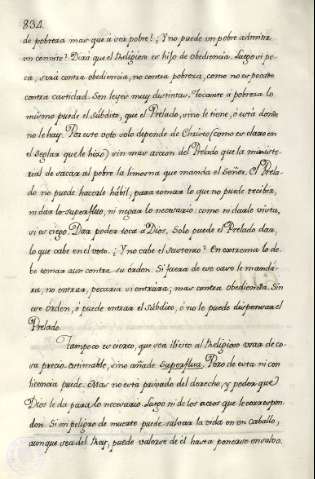 834.
de pobreza mas que à vèr pobre? ¿Y no puede un pobre admitir
un convite? Dirà que el Religioso es hijo de obediencia. Luego si pe-
ca, serà contra obediencia, no contra pobreza, como no es pecado
contra castidad. Son leyes muy distintas. Tocante à pobreza lo
mismo puede el subdito, que el Prelado, sino le tiene, ò està donde
no le hay. Por este voto solo depende de Christo (como es claro en
el seglar que le hizo) sin mas accion del Prelado que la ministe-
rial de sacar al pobre la limosna que manda el Señor. El Prela-
do no puede hacerle hábil, para tomar lo que no puede recibir,
ni dar lo superfluo, ni negar lo necesario: como ni darle vista,
si es ciego. Dirà poder toca à Dios. Solo puede el Prelado dar,
lo que cabe en el voto. ¿Y no cabe el sustento? En extrema lo de-
be tomar aun contra su orden. Si fuera de ese caso le mandà-
ra, no entrar, pecarìa si entràra; mas contra obediencia. Sin
ese orden, ò puede entrar el subdito, ò no le puede dispensar el
Prelado.
Tampoco es cierto, que sea ilicito al Religioso usar de co-
sa precio estimable, sino añade superflua. Pero de esta ni con
licencia puede. Mas no està privado del derecho, y poder que
Dios le da para lo necesario. Luego ni de los actos que le correspon-
den. Si en peligro de muerte puede salvar la vida en un caballo,
aunque sea del Rey, puede valerse de èl hasta ponerse en salvo.